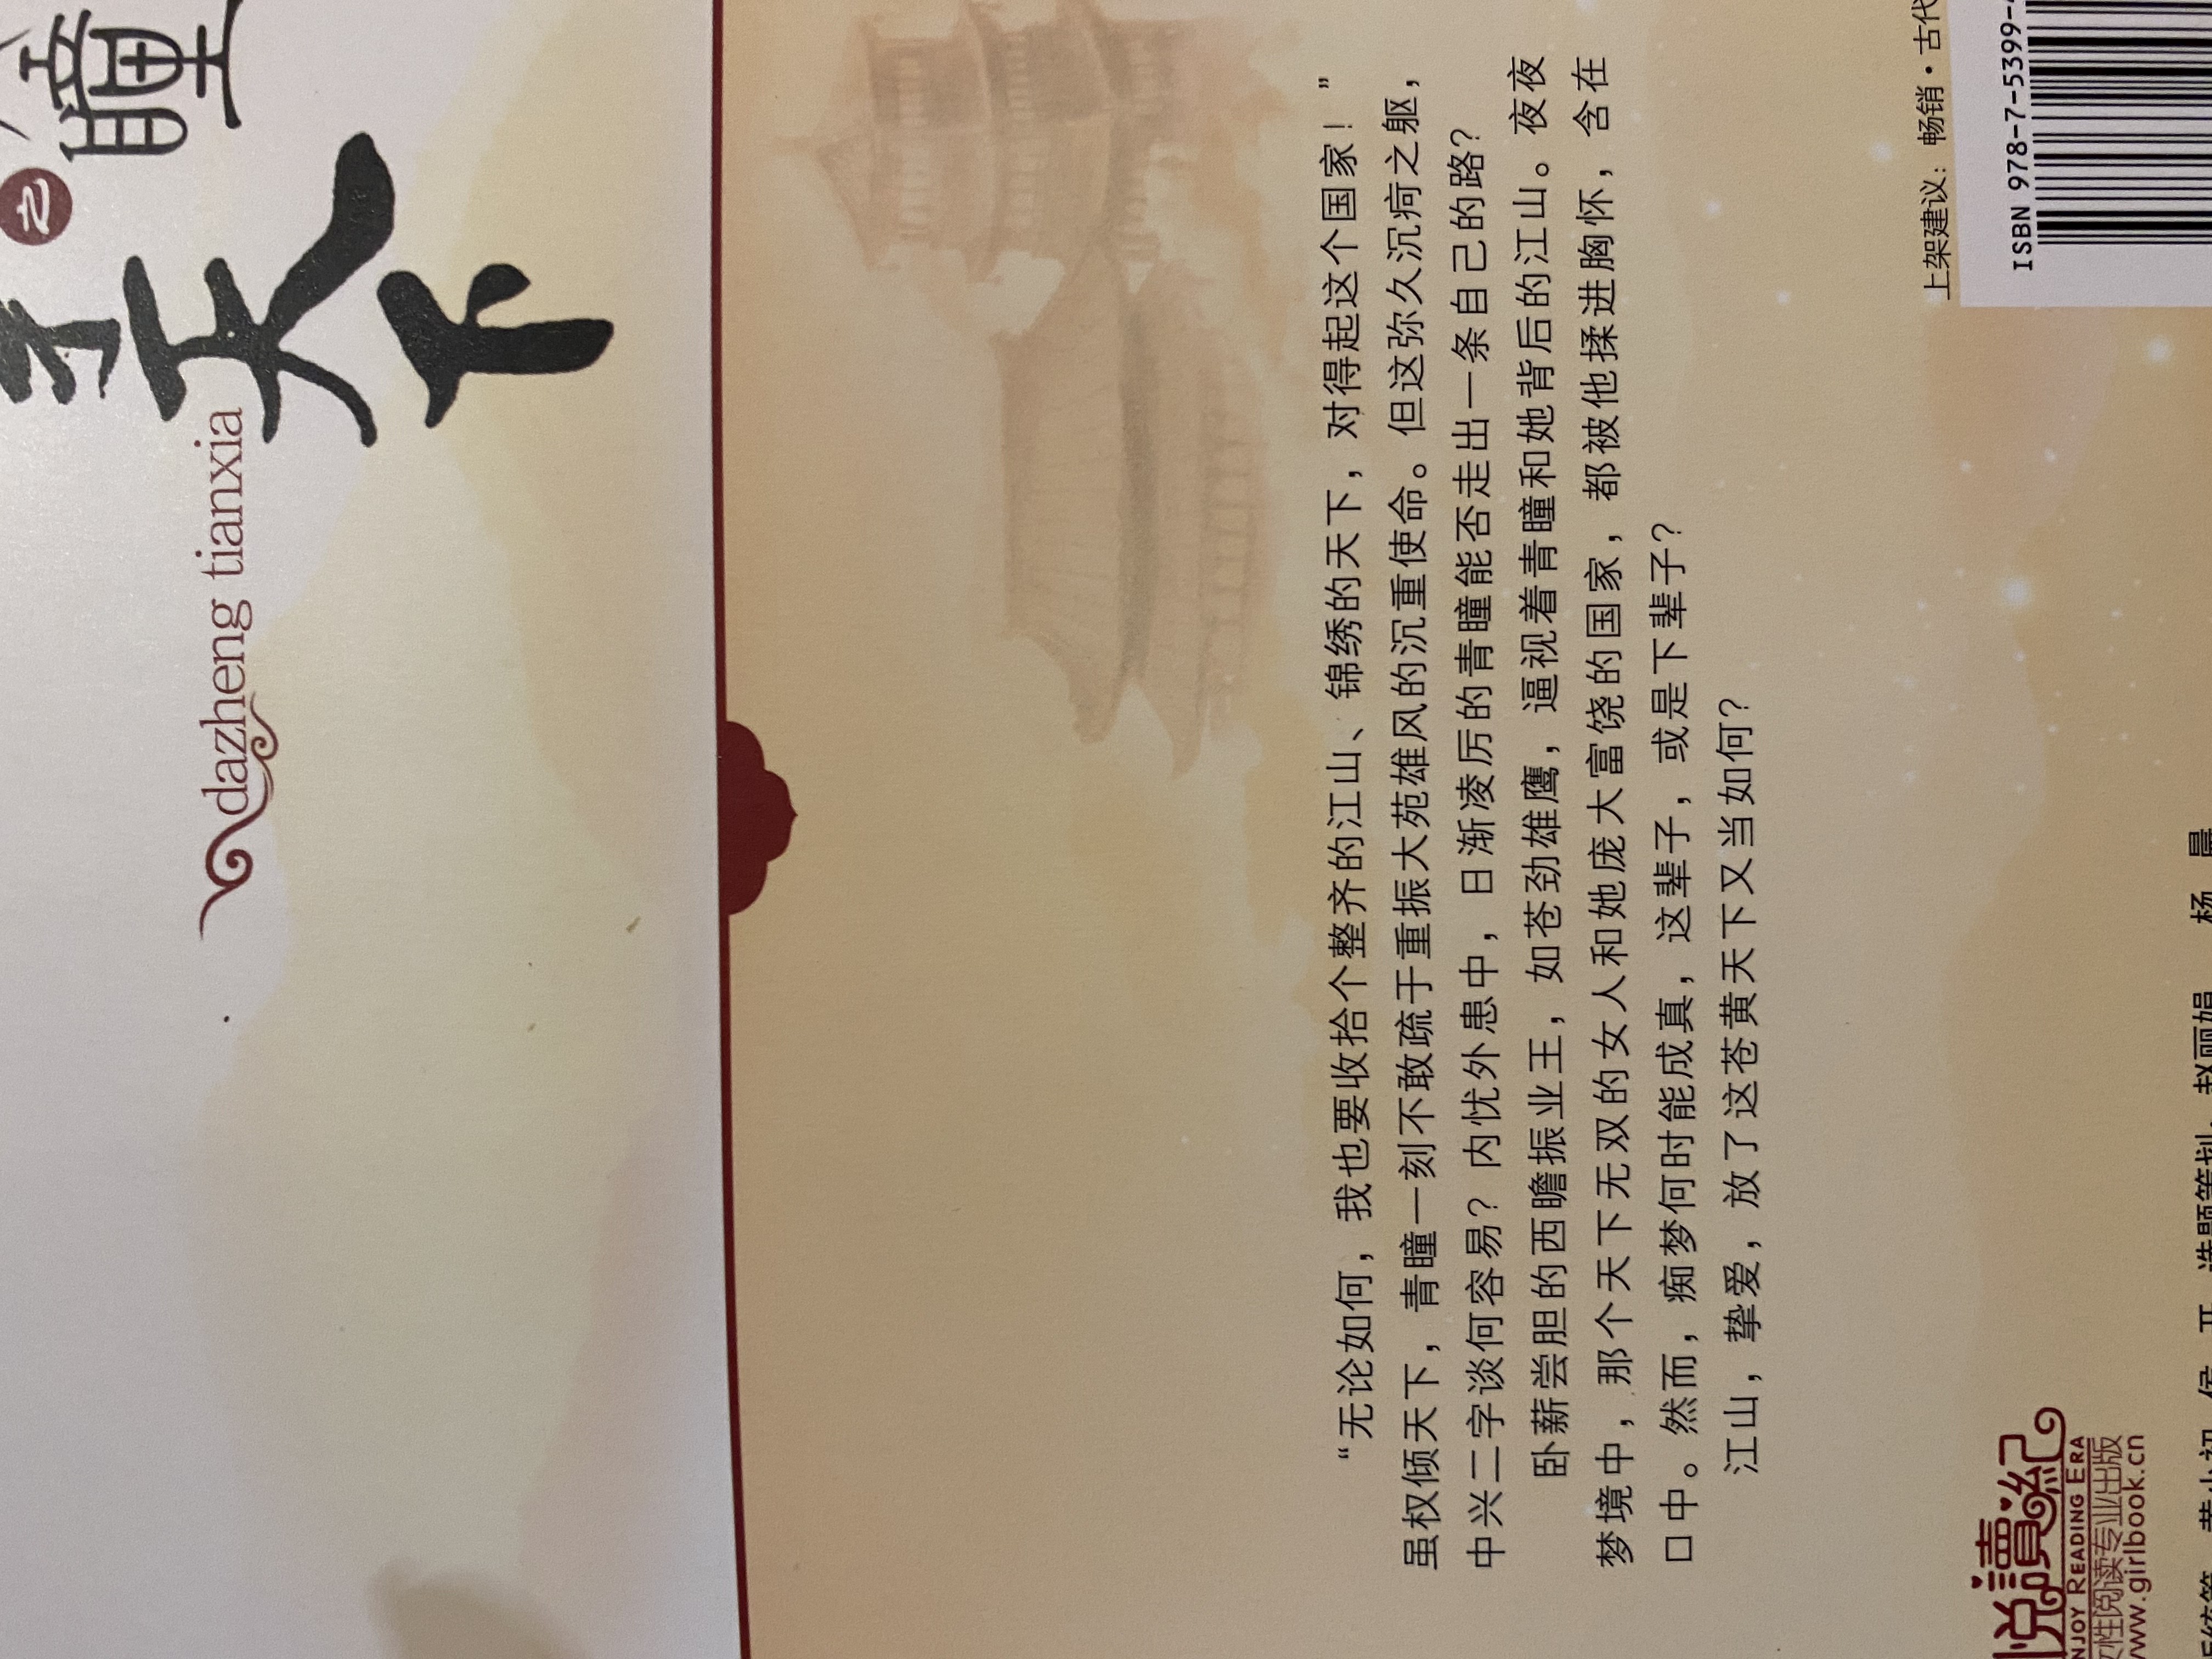 瞳
之
天下
dazheng tianxia
“无论如何，我也要收拾个整齐的江山、锦绣的天下，对得起这个国家！”
虽权倾天下，青瞳一刻不敢疏于重振大苑雄风的沉重使命。但这弥久沉疴之躯，
中兴二字谈何容易？内忧外患中，日渐凌厉的青瞳能否走出一条自己的路？
卧薪尝胆的西瞻振业王，如苍劲雄鹰，逼视着青瞳和她背后的江山。夜夜
梦境中，那个天下无双的女人和她庞大富饶的国家，都被他揉进胸怀，含在
口中。然而，痴梦何时能成真，这辈子，或是下辈子？
江山，挚爱，放了这苍黄天下又当如何？
上架建议：畅销·古代
ISBN 978-7-5399-
悦讀紀
ENJOY READING ERA
女性阅读专业出版
www.girlbook.cn
选题策划 赵丽娟 杨